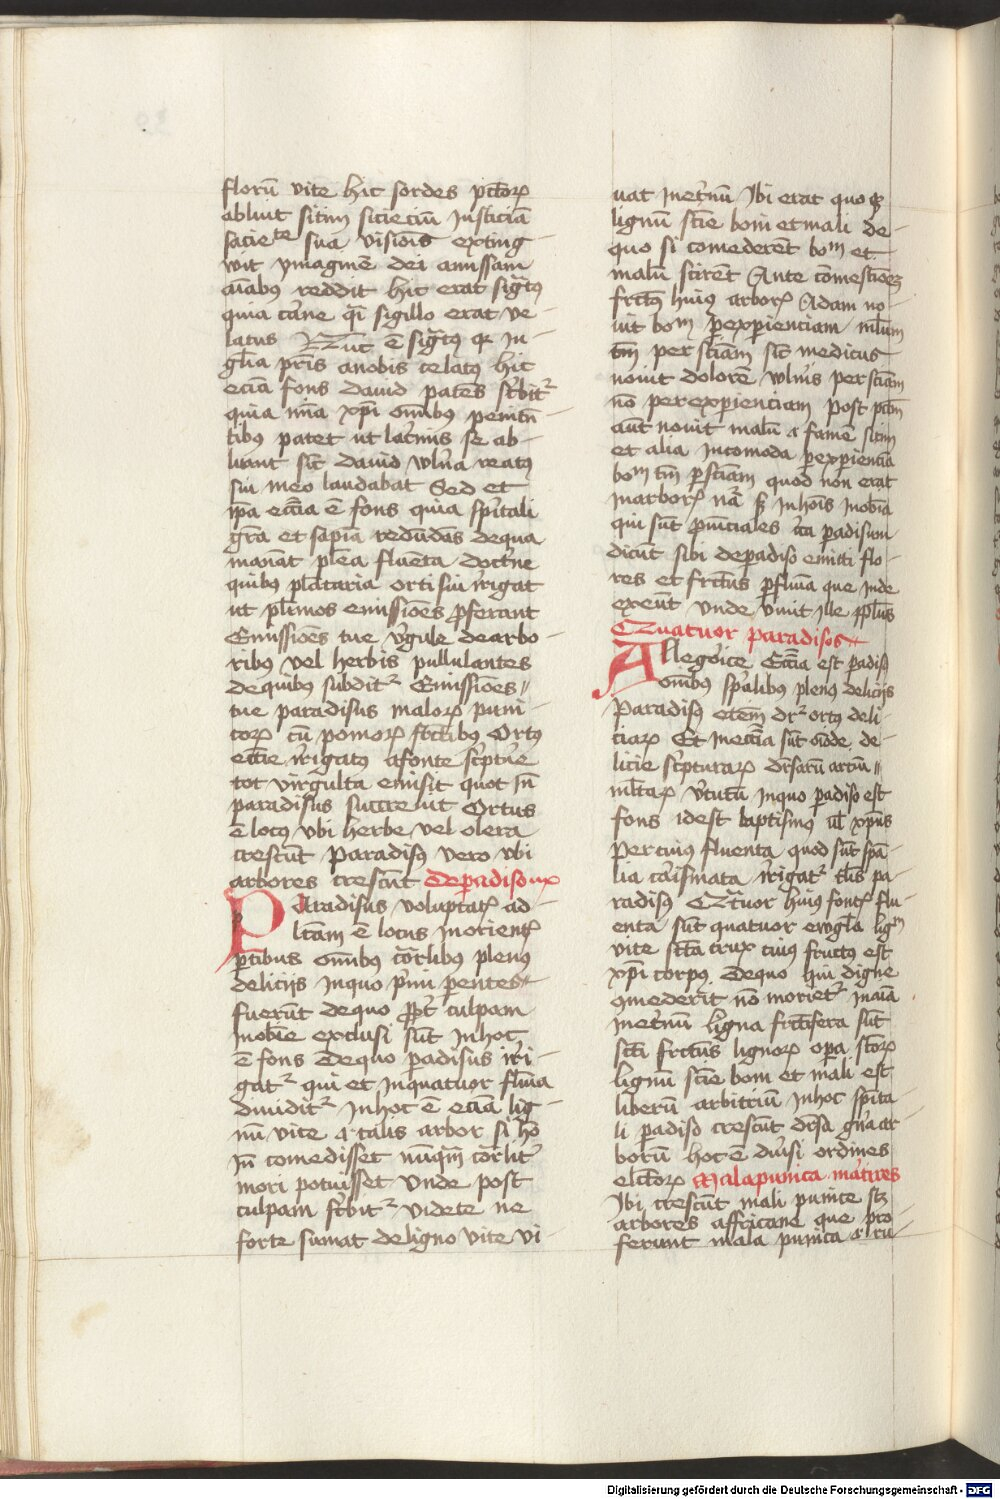 florū vite hic sordes pcto᷑ꝝ
abluit sitim sicienciū Justiciā
saciete sua visiōis exting
wit ymaginē dei amissam
aīabus reddit hic erat sigtꝰ
quia cāne qͥ sigillo erat ve-
latus Nūc ē sigtꝰ qꝛ in-
glia pris anobis celatꝰ hic
eciā fons dauid patēs scbit᷑
quia mīa xp̄i omībꝰ penitē-
tibꝰ patet ut lac͛mis se ab-
luant sic dauid wln͛a reatꝰ
sui meo laudabat Sed et
ip̄a ecc̄ia ē fons quia spirtali
gr̄a et sapīa redūdās dequa
manāt plēa fluēta doct͛ne
quibꝰ plātaria orti sui irrigat
ut plīmos emissiōes ꝓferant
Emissiōes tue v͛gule dearbo-
ribꝰ vel herbis pullulantes
dequibꝰ subdit᷑ Emissiōes
tue paradisus maloꝝ puni-
coꝝ cū pomoꝝ fctibꝰ Ortꝰ
ecc̄ie irrigatꝰ afonte sc͛ptu͛e
tot virgulta emisit quot in
paradisus succreuit Ortus
ē locꝰ vbi herbe vel olera
crescūt Paradisꝰ vero vbi
arbores crescūt De padiso uꝝ
Paradisus voluptatꝭ ad
lr̄am ē locus in orientꝭ
ꝑtibus omībꝰ cōrlibꝰ plenꝰ
delicijs inquo p͛mi ꝑentes
fuerūt dequo ꝓpt culpam
inobīe exclusi sūt Inhoc
ē fons Dequo ꝑadisus irri-
gat᷑ qui et inquatuor flūia
diuidit᷑ Inhoc ē eciā lig-
nū vite ⁊ talis arbor si hō
in comedisset nūqm̄ cōrlit͛
mori potuisset Unde post
culpam scbit᷑ videte ne
forte sumat de ligno vite vi-
uat inet͛nū Ibi erat quoqꝫ
lignū sc͛ie boni et mali de-
quo si comederēt bom et
malū scirēt Ante comestiōeꝫ
frctꝰ huiꝰ arboꝝ Adam no-
uit bom ꝑexperienciam mlum
tm̄ per sciam sic medicus
nouit dolorē wln͛is per sciam
nō per experienciam Post pctm̄
aūt nouit malū ⁊ famē sitim
et alia incomoda ꝑexperienciā
bom tm̄ ꝑsciam quod non erat
in arborꝭ nar̄ sꝫ in hoīs inobīa
qui sūt ꝓuīciales ita ꝑadisum
dicūt sibi deparadiso emitti flo-
res et frctus ꝑfluīa que inde
exeūt Unde vnuit ille pplus
Quatuor paradisos
Allegoice Ecc̄ia est padisꝰ
omībꝰ sp̄alibꝰ plenꝰ delicijs
Paradisꝰ etem̄ dr᷑ ortꝰ deli-
ciaꝝ Et inecc̄ia sūt oīode de-
licie sc͛pturaꝝ drsarū arciū
mltaꝝ v͛tutū inquo padiso est
fons idest baptismꝰ ul xp̄us
Per cuiꝰ fluenta quod sūt sp̄a-
lia carismata irrigat᷑ tlis pa-
radisꝰ Qͣtuor huiꝰ fontꝭ flu-
enta sūt quatuor ewgla ligm
vite sctā crux cuiꝰ fructꝰ est
xp̄i corpꝰ Dequo qui digne
ꝯmederit nō moriet᷑ inaīa
inet͛nū Ligna frctifera sūt
scti frctus lignoꝝ oꝑa sctoꝝ
Lignū scie boni et mali est
liberū arbitriū Inhoc sp̄ita-
li ꝑadiso crescūt drsa gn͛a ar
borū hoc ē diu͛si ordines
elctoꝝ Malapunica m͛tires
Ibi crescūt mali punice scꝫ
arbores affricane que pro-
ferunt mala punica ⁊ ru-
Digitalisierung gefördert durch die Deutsche Forschungsgemeinschaft - DFG